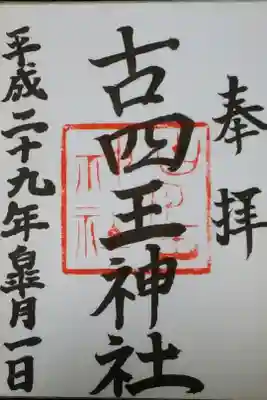 奉拝
古四王神社
平成二十九年皐月一日